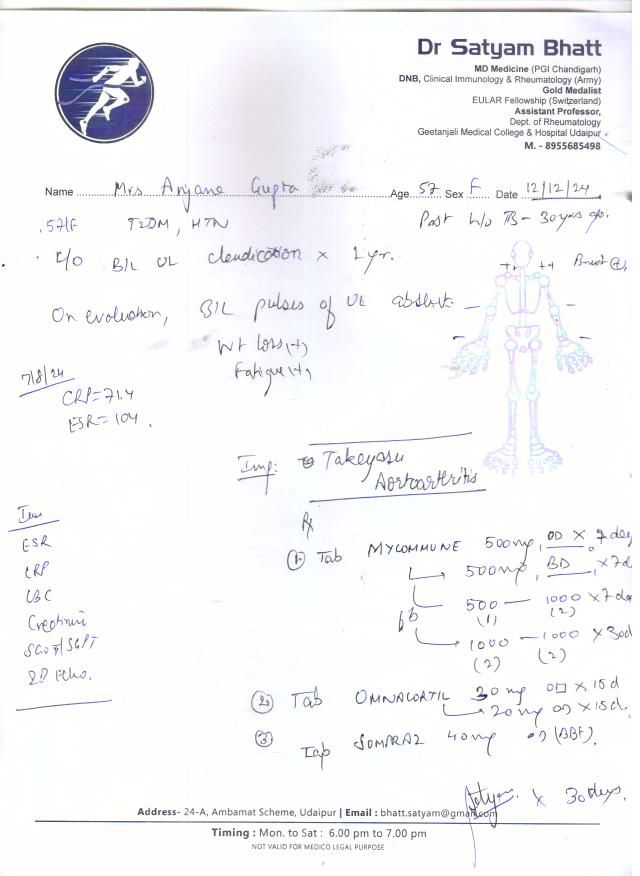 Dr Satyam Bhatt
MD Medicine (PGI Chandigarh)
DNB, Clinical Immunology & Rheumatology (Army)
Gold Medalist
EULAR Fellowship (Switzerland)
Assistant Professor,
Dept. of Rheumatology
Geetanjali Medical College & Hospital Udaipur
M. - 8955685498
Name Mrs Anjana Gupta Age 57 Sex F Date 12/12/24
57/F T2DM, HTN Past h/o TB - 30 yrs
c/o B/L UL claudication x 1 yr.
++ ++ Bruit (+)
On evaluation, B/L pulses of UL absent
Wt loss (+)
Fatigue (+)
7/8/24
CRP = 71.4
ESR = 104.
Imp: Takayasu
Aortoarteritis
Rx
ESR
CRP
CBC
Creatinine
SGOT/SGPT
2D Echo.
① Tab MYCOMMUNE 500mg, OD x 7 day
500mg, BD x 7d
500 — 1000 x 7 day
(1) (2)
1000 — 1000 x 30d
(2) (2)
② Tab OMNACORTIL 30 mg OD x 15 d
20 mg OD x 15 d
③ Tab SOMPRAZ 40mg OD (BBF).
x 30 days.
Address- 24-A, Ambamat Scheme, Udaipur | Email : bhatt.satyam@gmail.com
Timing : Mon. to Sat : 6.00 pm to 7.00 pm
NOT VALID FOR MEDICO LEGAL PURPOSE